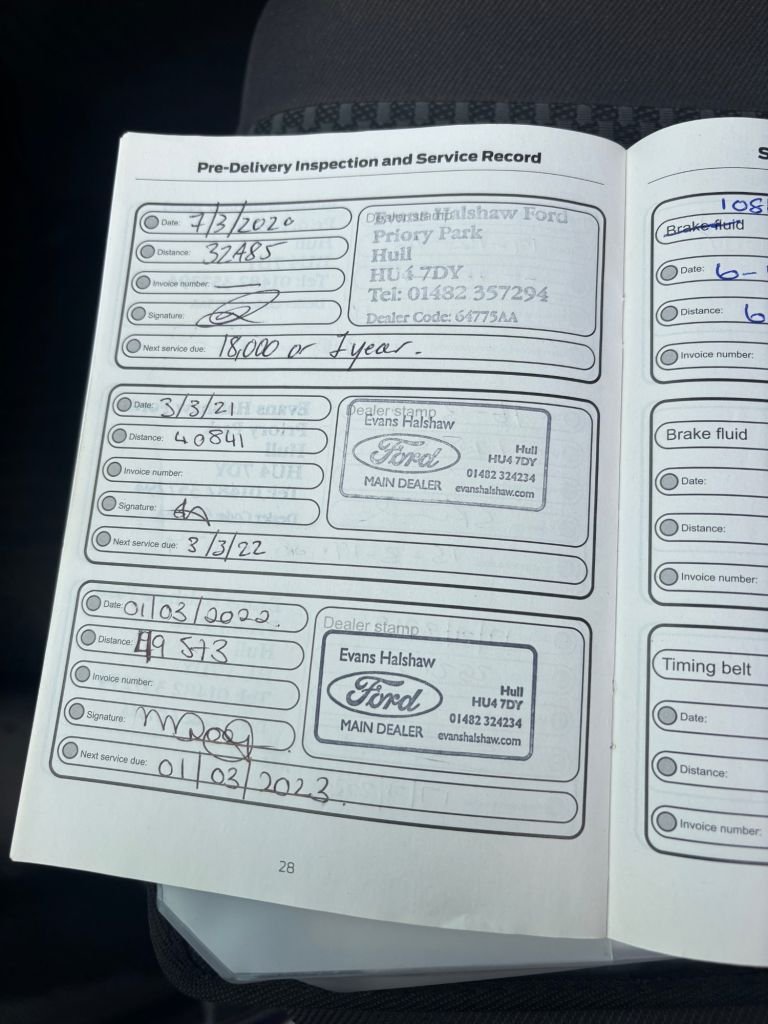 Pre-Delivery Inspection and Service Record
Date: 7/3/2020
Distance: 32485
Invoice number: —
Signature:
Next service due: 18,000 or 1 year.
Dealer stamp
Evans Halshaw Ford
Priory Park
Hull
HU4 7DY
Tel: 01482 357294
Dealer Code: 64775AA
Date: 3/3/21
Distance: 40841
Invoice number:
Signature:
Next service due: 3/3/22
Dealer stamp
Evans Halshaw
Ford
MAIN DEALER
Hull
HU4 7DY
01482 324234
evanshalshaw.com
Date: 01/03/2022.
Distance: 49 573
Invoice number:
Signature:
Next service due: 01/03/2023.
Dealer stamp
Evans Halshaw
Ford
MAIN DEALER
Hull
HU4 7DY
01482 324234
evanshalshaw.com
28
S
108
Brake fluid
Date: 6-
Distance: 6
Invoice number:
Brake fluid
Date:
Distance:
Invoice number:
Timing belt
Date:
Distance:
Invoice number: